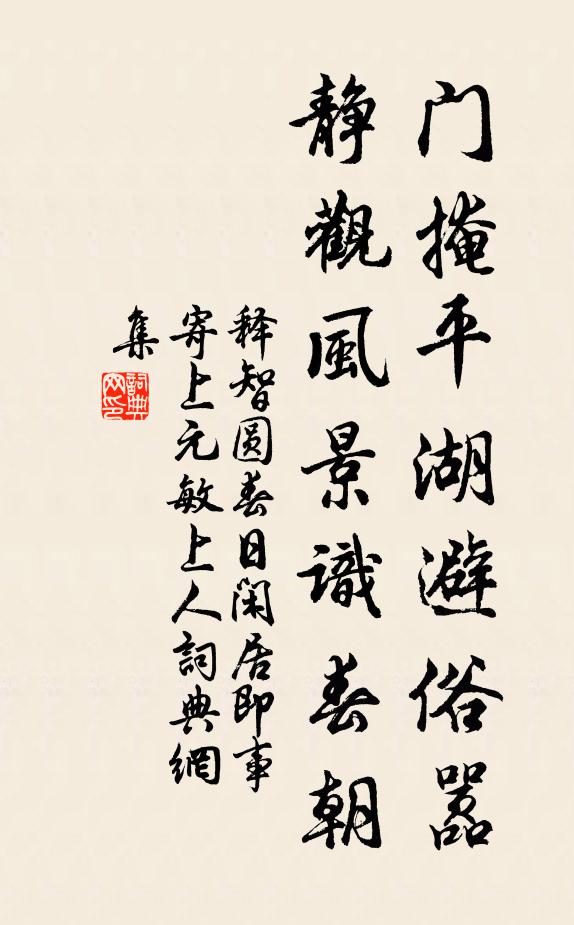 门掩平湖避俗嚣
静觀風景識春朝
释智圆春日闲居即事
寄上元敏上人詞典網
集
詞典网印